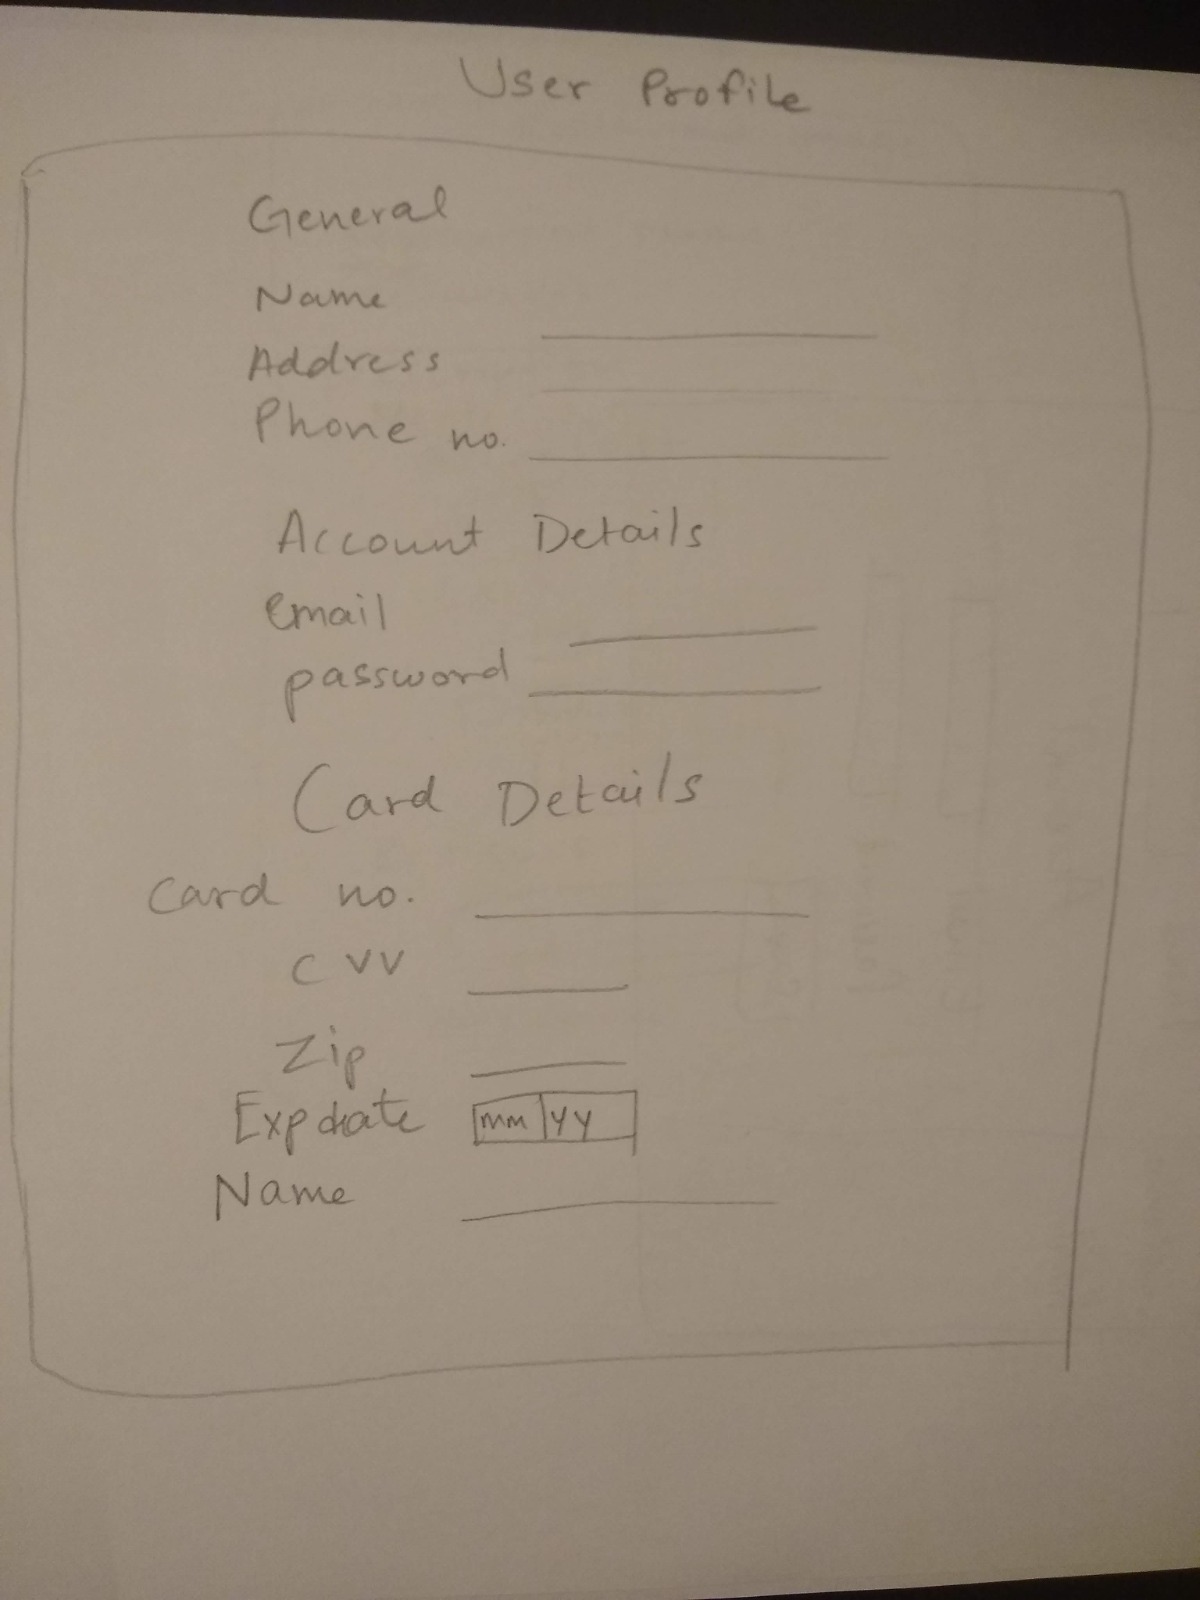 User Profile
General
Name
Address
Phone no.
Account Details
email
password
Card Details
Card no.
CVV
Zip
Exp date mm yy
Name